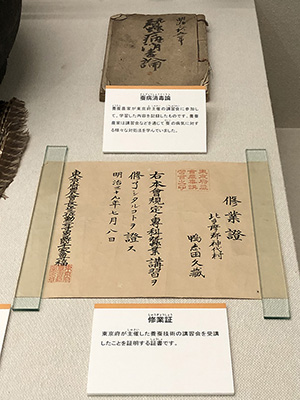 蚕病消毒論
養蚕農家が東京府主催の講習会に参加し
て、学習した内容を記録したものです。養蚕
農家は講習会などを通じて蚕の病気に対す
る様々な対処法を学んでいました。
修業證
北多摩郡神代村
鴨志田久蔵
右本會規定ノ専科蠶業講習ヲ
修了シタルコトヲ證ス
明治三十九年七月八日
修業証
東京府が主催した養蚕技術の講習会を受講
したことを証明する証書です。